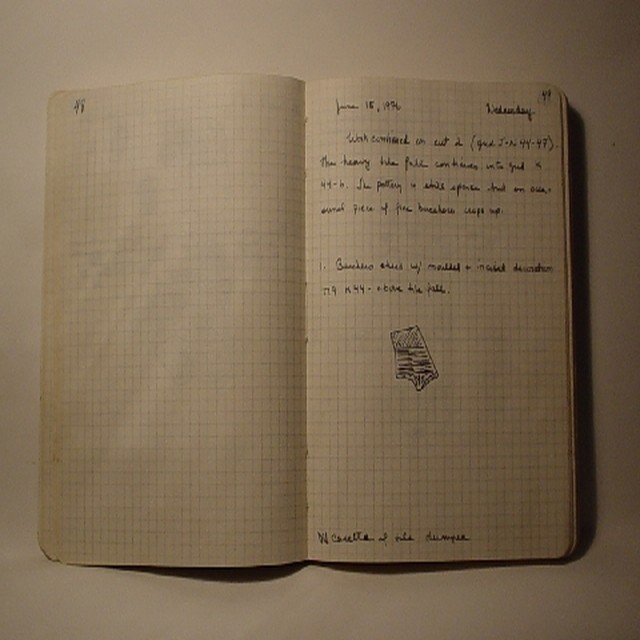 48
49
June 15, 1976 Wednesday
Work continued on cut 2 (grid J-N 44-47).
The heavy tile fall continues into grid K
44-6. The pottery is still sparse but an
piece of fine bucchero crops up.
1. Bucchero w/ moulded + incised decoration
K44 - above tile fall.
casetta of tile dumped